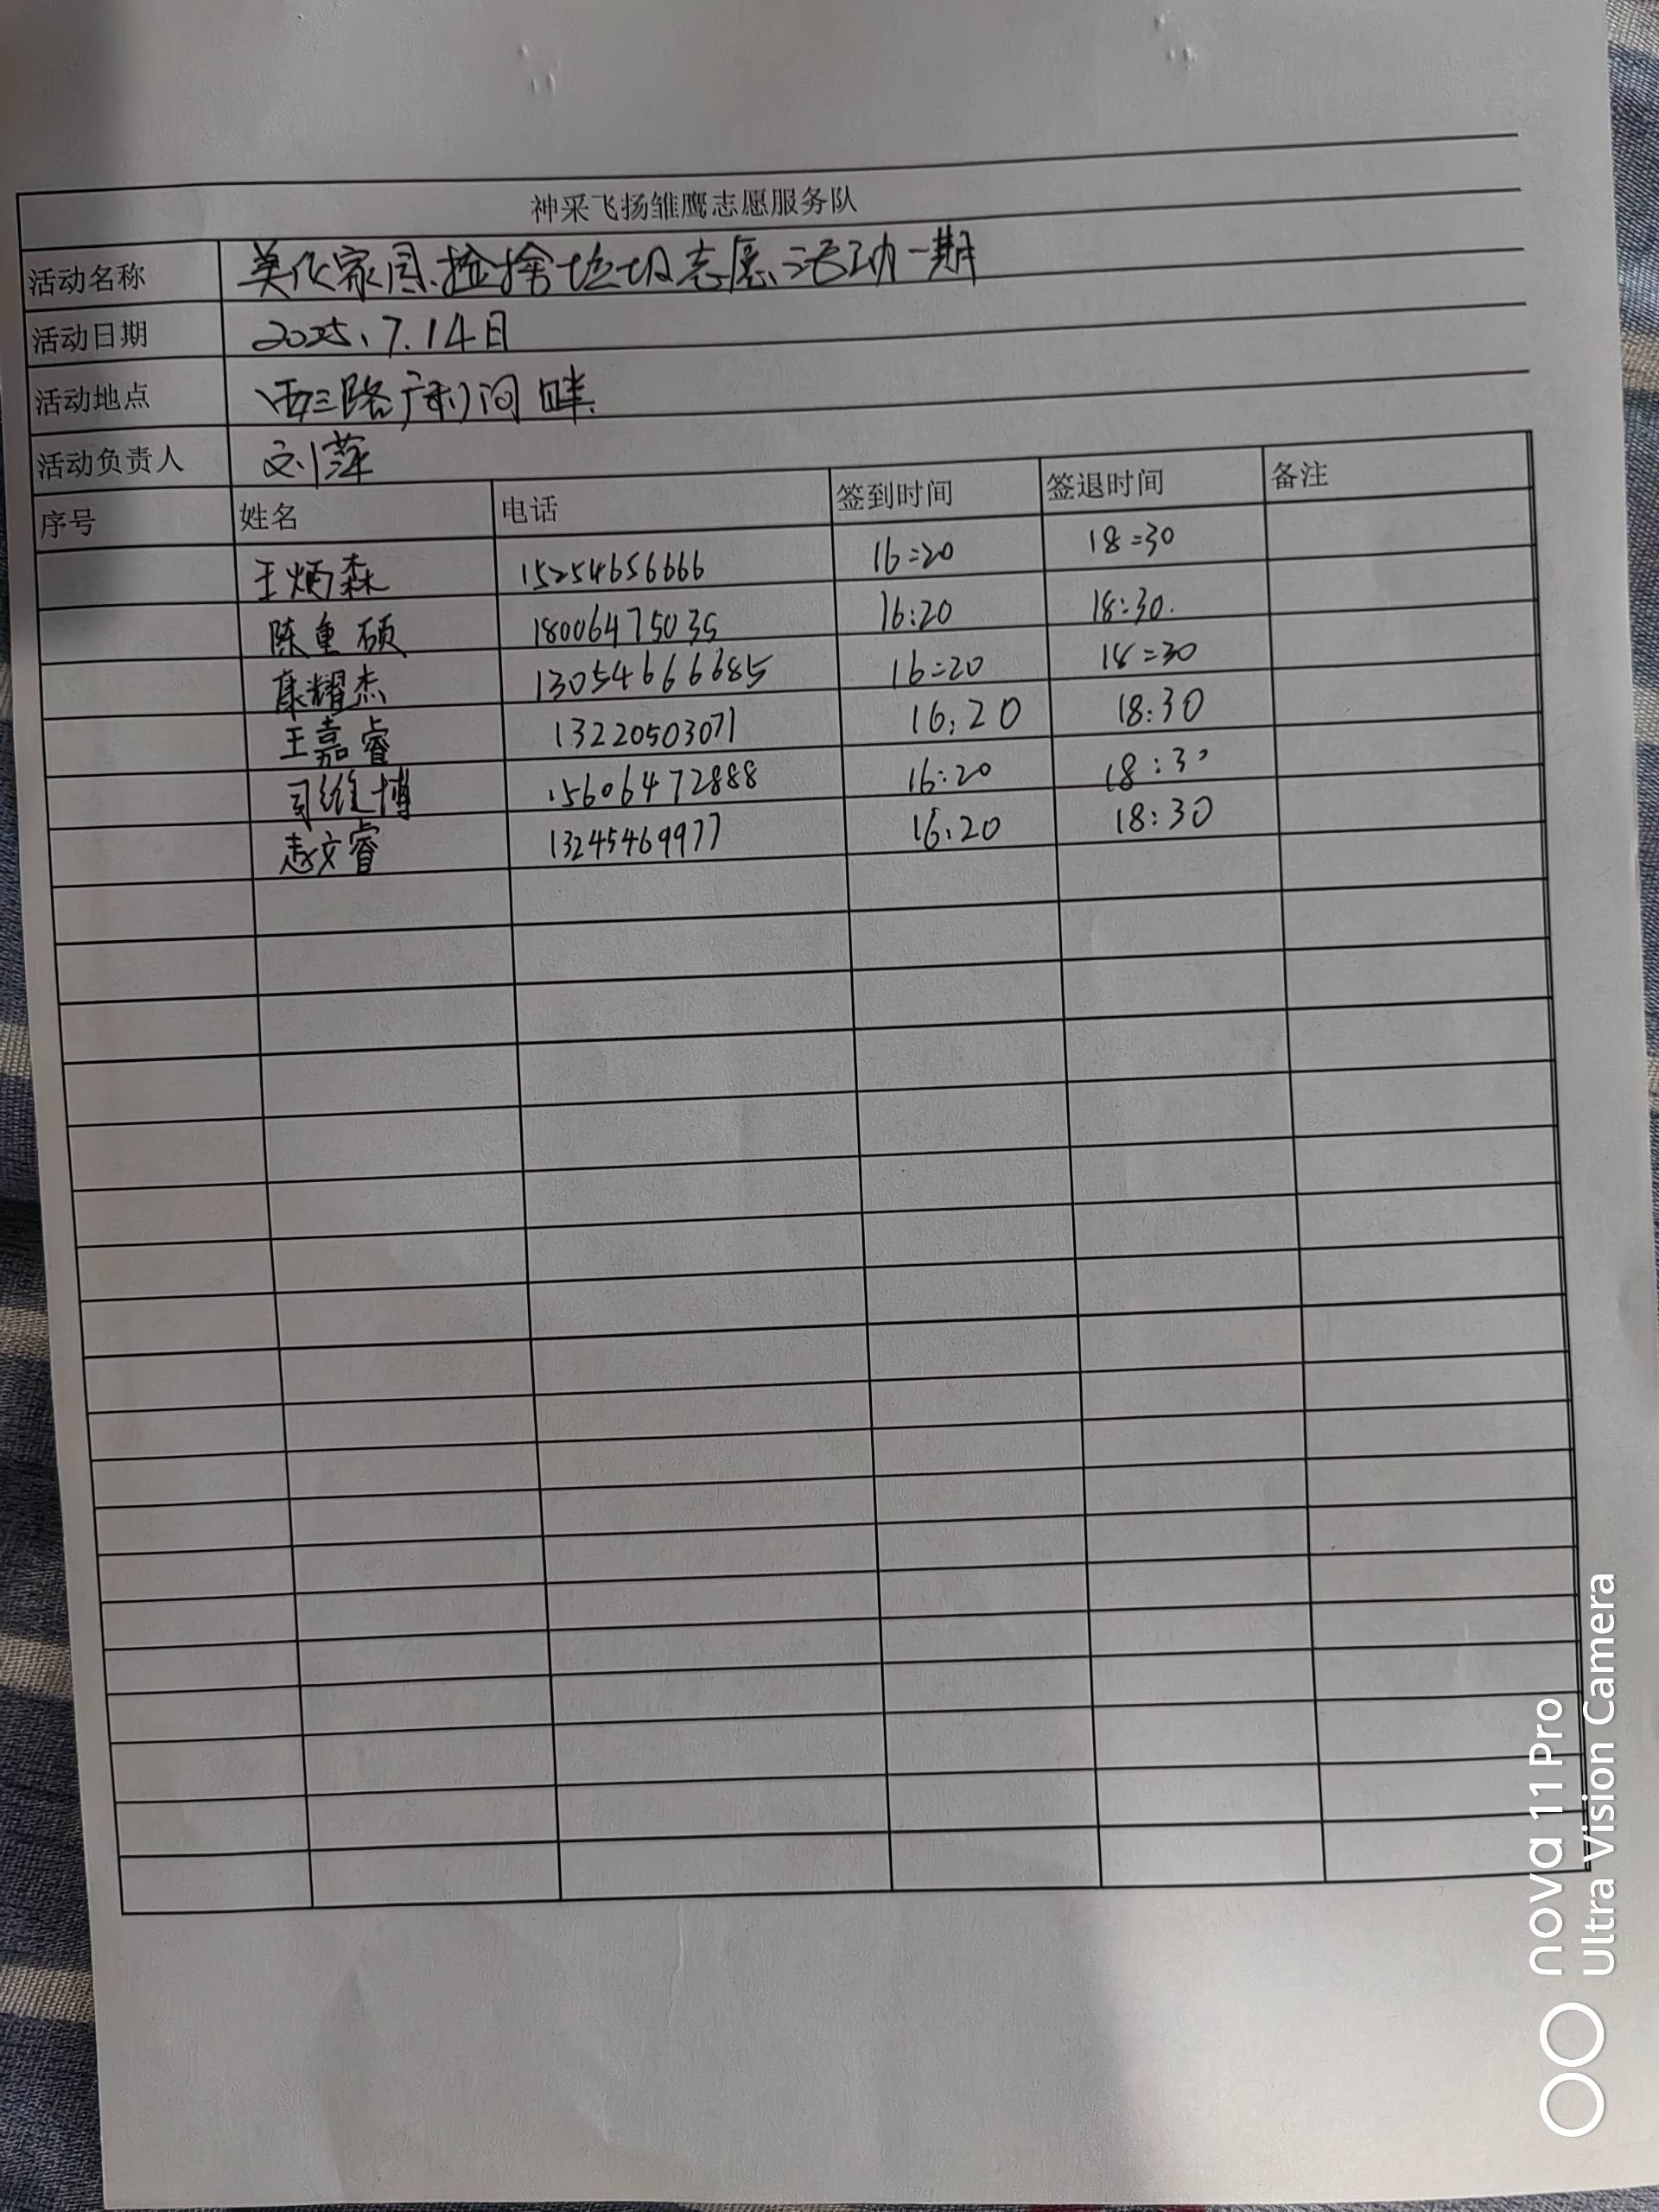 神采飞扬雏鹰志愿服务队
活动名称 美化家园.捡拾垃圾志愿活动一期
活动日期 2025、7.14日
活动地点 西三路广利河畔.
活动负责人 刘萍
序号 姓名 电话 签到时间 签退时间 备注
王炳森 15254656666 16:20 18:30
陈重硕 18006475035 16:20 18:30.
康耀杰 13054666685 16:20 18:30
王嘉睿 13220503071 16:20 18:30
司维博 15606472888 16:20 18:30
赵文睿 13245469977 16:20 18:30
nova 11 Pro
Ultra Vision Camera